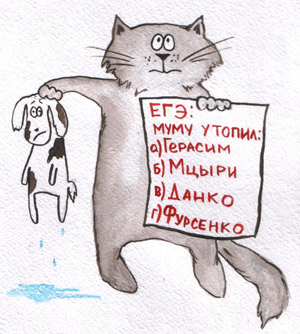 ЕГЭ:
МУМУ УТОПИЛ:
а) ГЕРАСИМ
б) МЦЫРИ
в) ДАНКО
г) ФУРСЕНКО